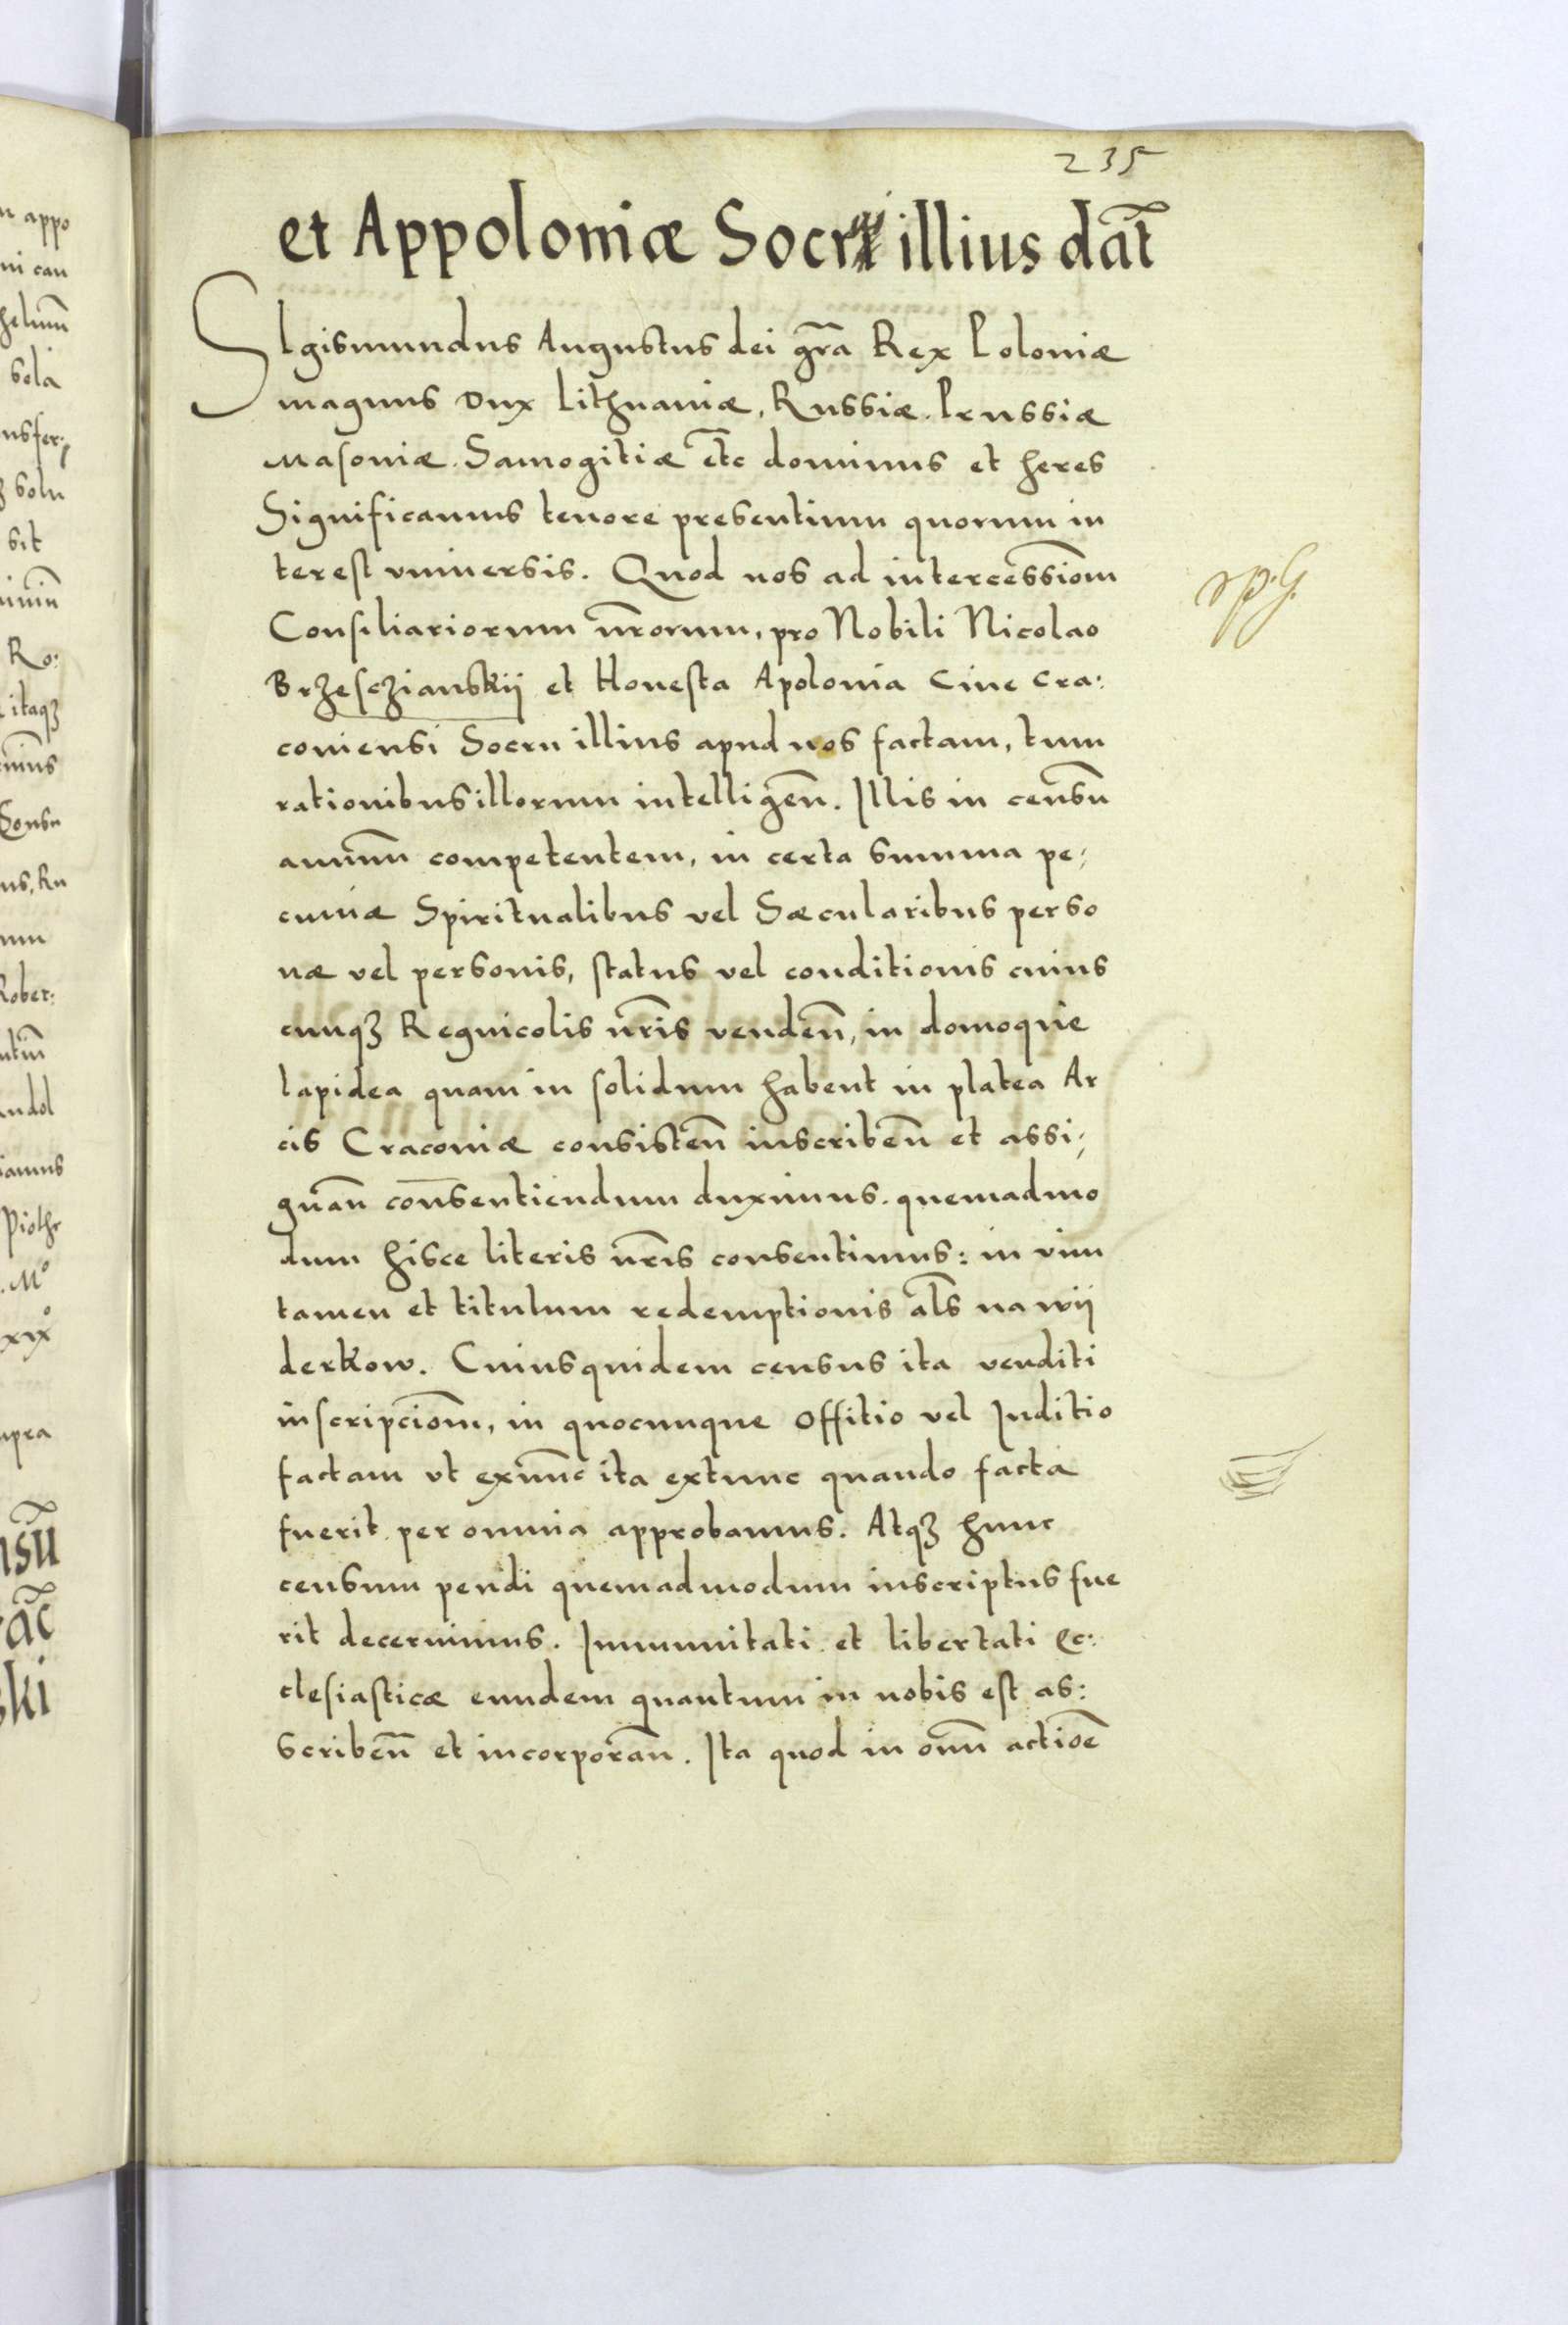 235
et Appoloniæ Socri illius dat̄
SIgismundus Augustus dei gr̄a Rex Poloniæ
magnus Dux Lithuaniæ, Russiæ. Prussiæ
Masoniæ. Samogitiæ etc̄ dominus et heres
Significamus tenore presentium quorum in
terest vniuersis. Quod nos ad intercessiom̄
Consiliariorum nr̄orum, pro Nobili Nicolao
Brzesczianskij et Honesta Apolonia Ciue Cra:
couiensi Socru illius apud nos factam, tum
rationibus illorum intelligen̄. Illis in censū
annuū competentem, in certa summa pe,
cuniæ Spiritualibus vel Sæcularibus perso
næ vel personis, status vel conditionis cuius
cunqꝫ Regnicolis nr̄is venden̄, in domoque
lapidea quam in solidum habent in platea Ar
cis Cracouiæ consisten̄ inscriben̄ et assi,
gnan̄ consentiendum duximus. quemadmo
dum hisce literis nr̄is consentimus: in vim
tamen et titulum redemptionis al̄s na wij
derkow. Cuiusquidem census ita venditi
inscripciom̄, in quocunque Offitio vel Iuditio
factam vt exnūc ita extunc quando facta
fuerit per omnia approbamus. Atqꝫ hunc
censum pendi quemadmodum inscriptus fue
rit decernimus. Immunitati et libertati Ec:
clesiasticæ eundem quantum in nobis est as:
scriben̄ et incorporan̄. Ita quod in omn̄ actioē